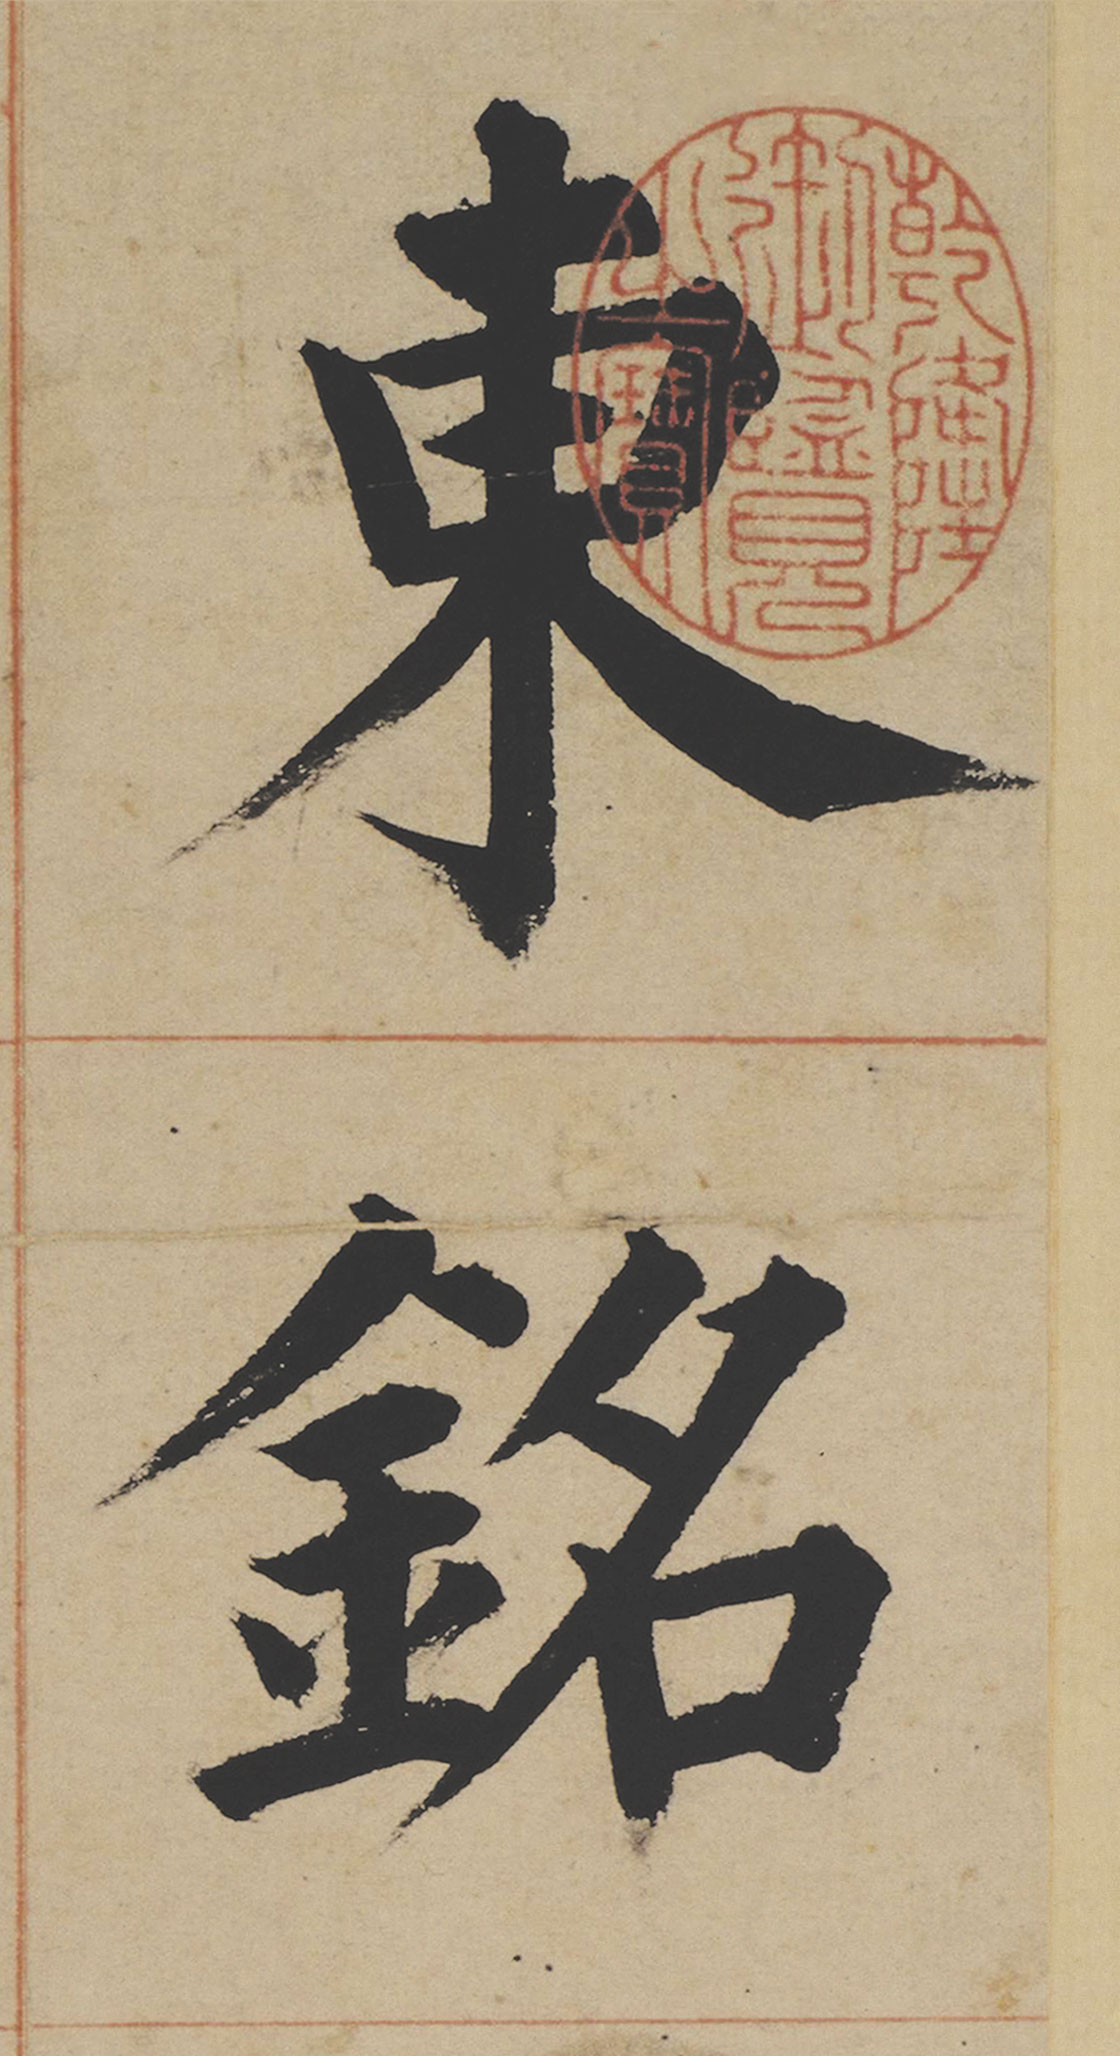 東銘
乾隆
御覽
之寶